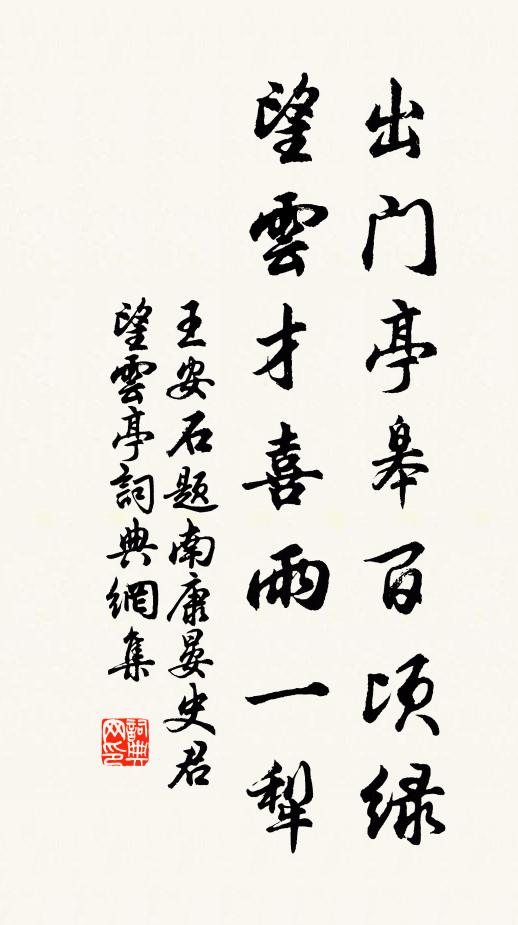 出門亭皋百頃綠
望雲才喜雨一犁
王安石題南康晏史君
望雲亭詞典網集
詞典
网印